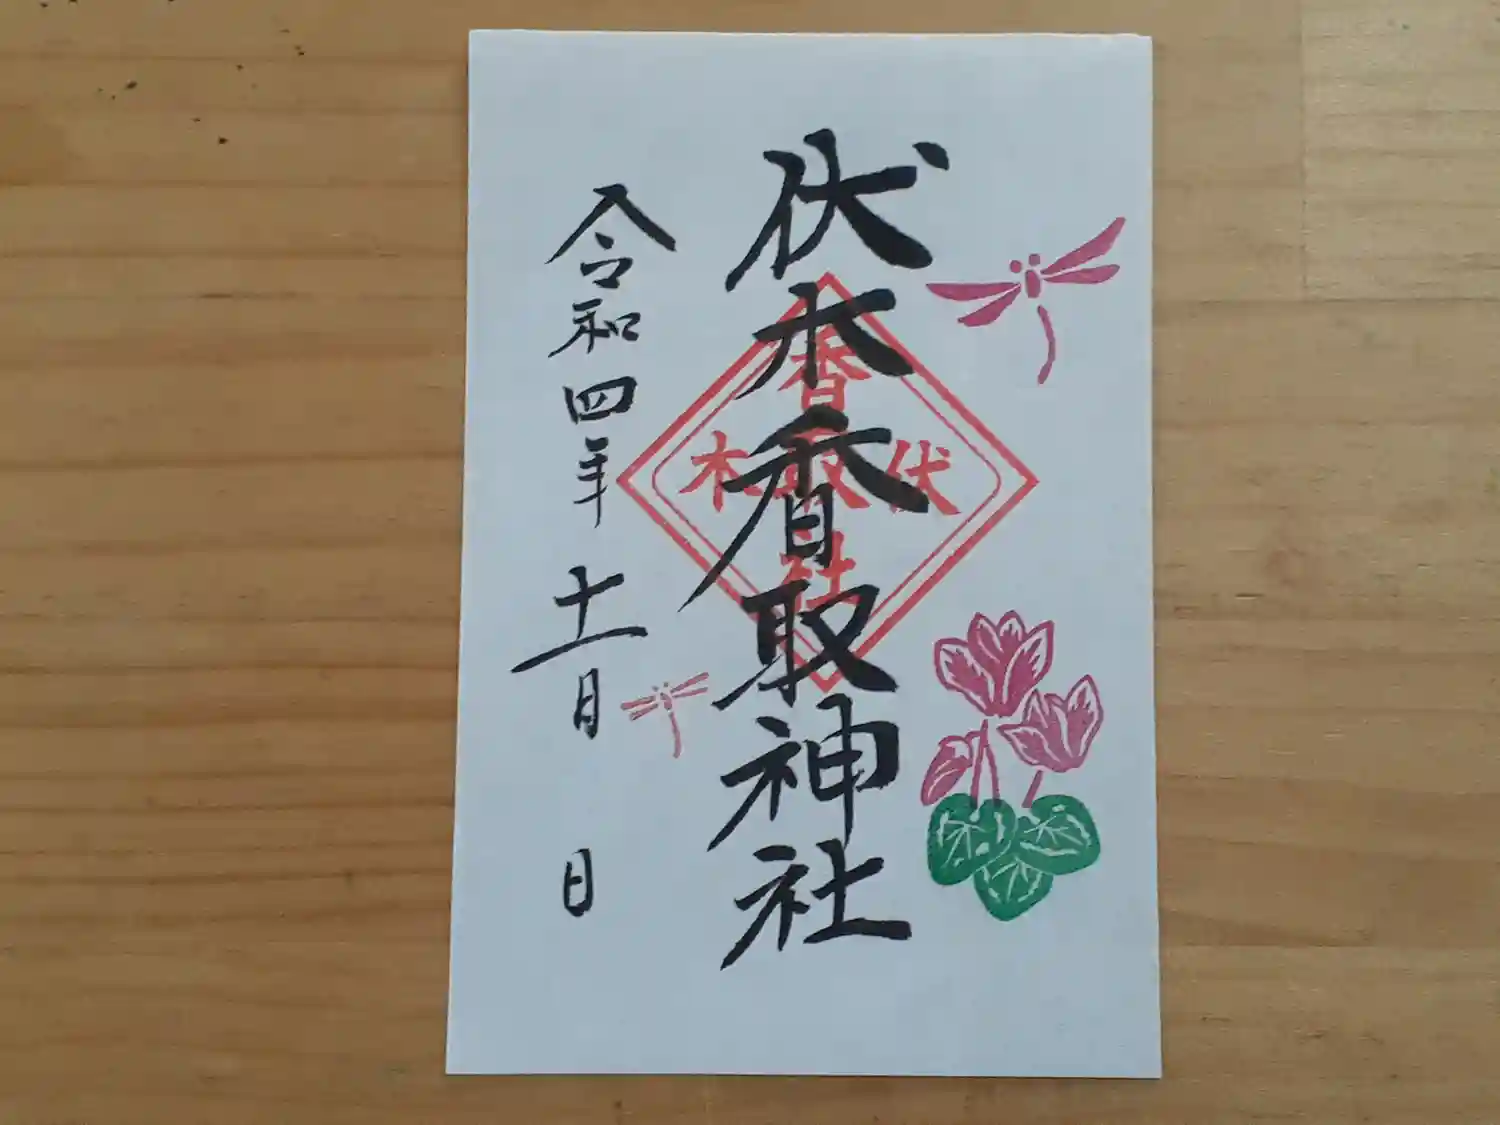 伏木香取神社
伏木
香取社
令和四年十一月 日